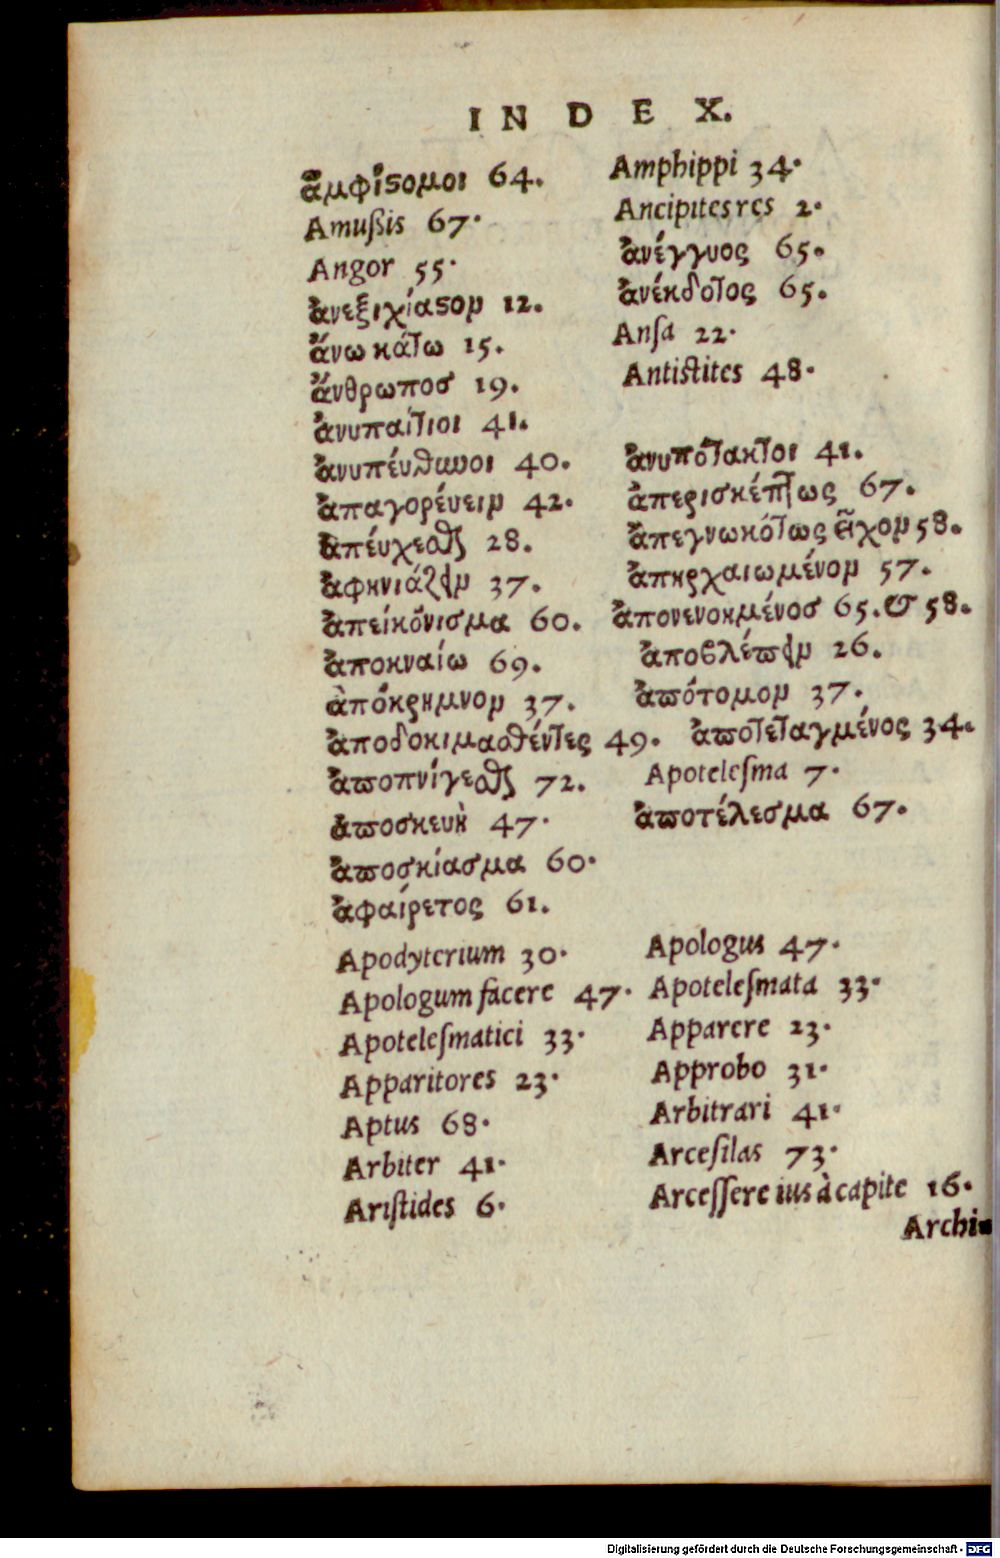 INDEX.
ἀμφίστομοι 64. Amphippi 34.
Amußis 67. Ancipites res 2.
Angor 55. ἀνέγγυος 65.
ἀνεξιχίαστον 12. ἀνέκδοτος 65.
ἄνω κάτω 15. Anſa 22.
ἄνθρωπος 19. Antistites 48.
ἀνυπαίτιοι 41.
ἀνυπέυθωοι 40. ἀνυπότακτοι 41.
ἀπαγορέυειν 42. ἀπερισκέπτως 67.
ἀπέυχεσθαι 28. ἀπεγνωκότως εἶχον 58.
ἀφηνιάζειν 37. ἀπηρχαιωμένον 57.
ἀπείκόνισμα 60. ἀπονενοημένος 65. & 58.
ἀποκναίω 69. ἀποβλέπειν 26.
ἀπόκρημνον 37. ἀπότομον 37.
ἀποδοκιμασθέντες 49. ἀποτεταγμένος 34.
ἀποπνίγεσθαι 72. Apoteleſma 7.
ἀποσκευὴ 47. ἀποτέλεσμα 67.
ἀποσκίασμα 60.
ἀφαίρετος 61.
Apodyterium 30. Apologus 47.
Apologum facere 47. Apoteleſmata 33.
Apoteleſmatici 33. Apparere 23.
Apparitores 23. Approbo 31.
Aptus 68. Arbitrari 41.
Arbiter 41. Arceſilas 73.
Ariſtides 6. Arceſſere ius à capite 16.
Archi-
Digitalisierung gefördert durch die Deutsche Forschungsgemeinschaft - DFG